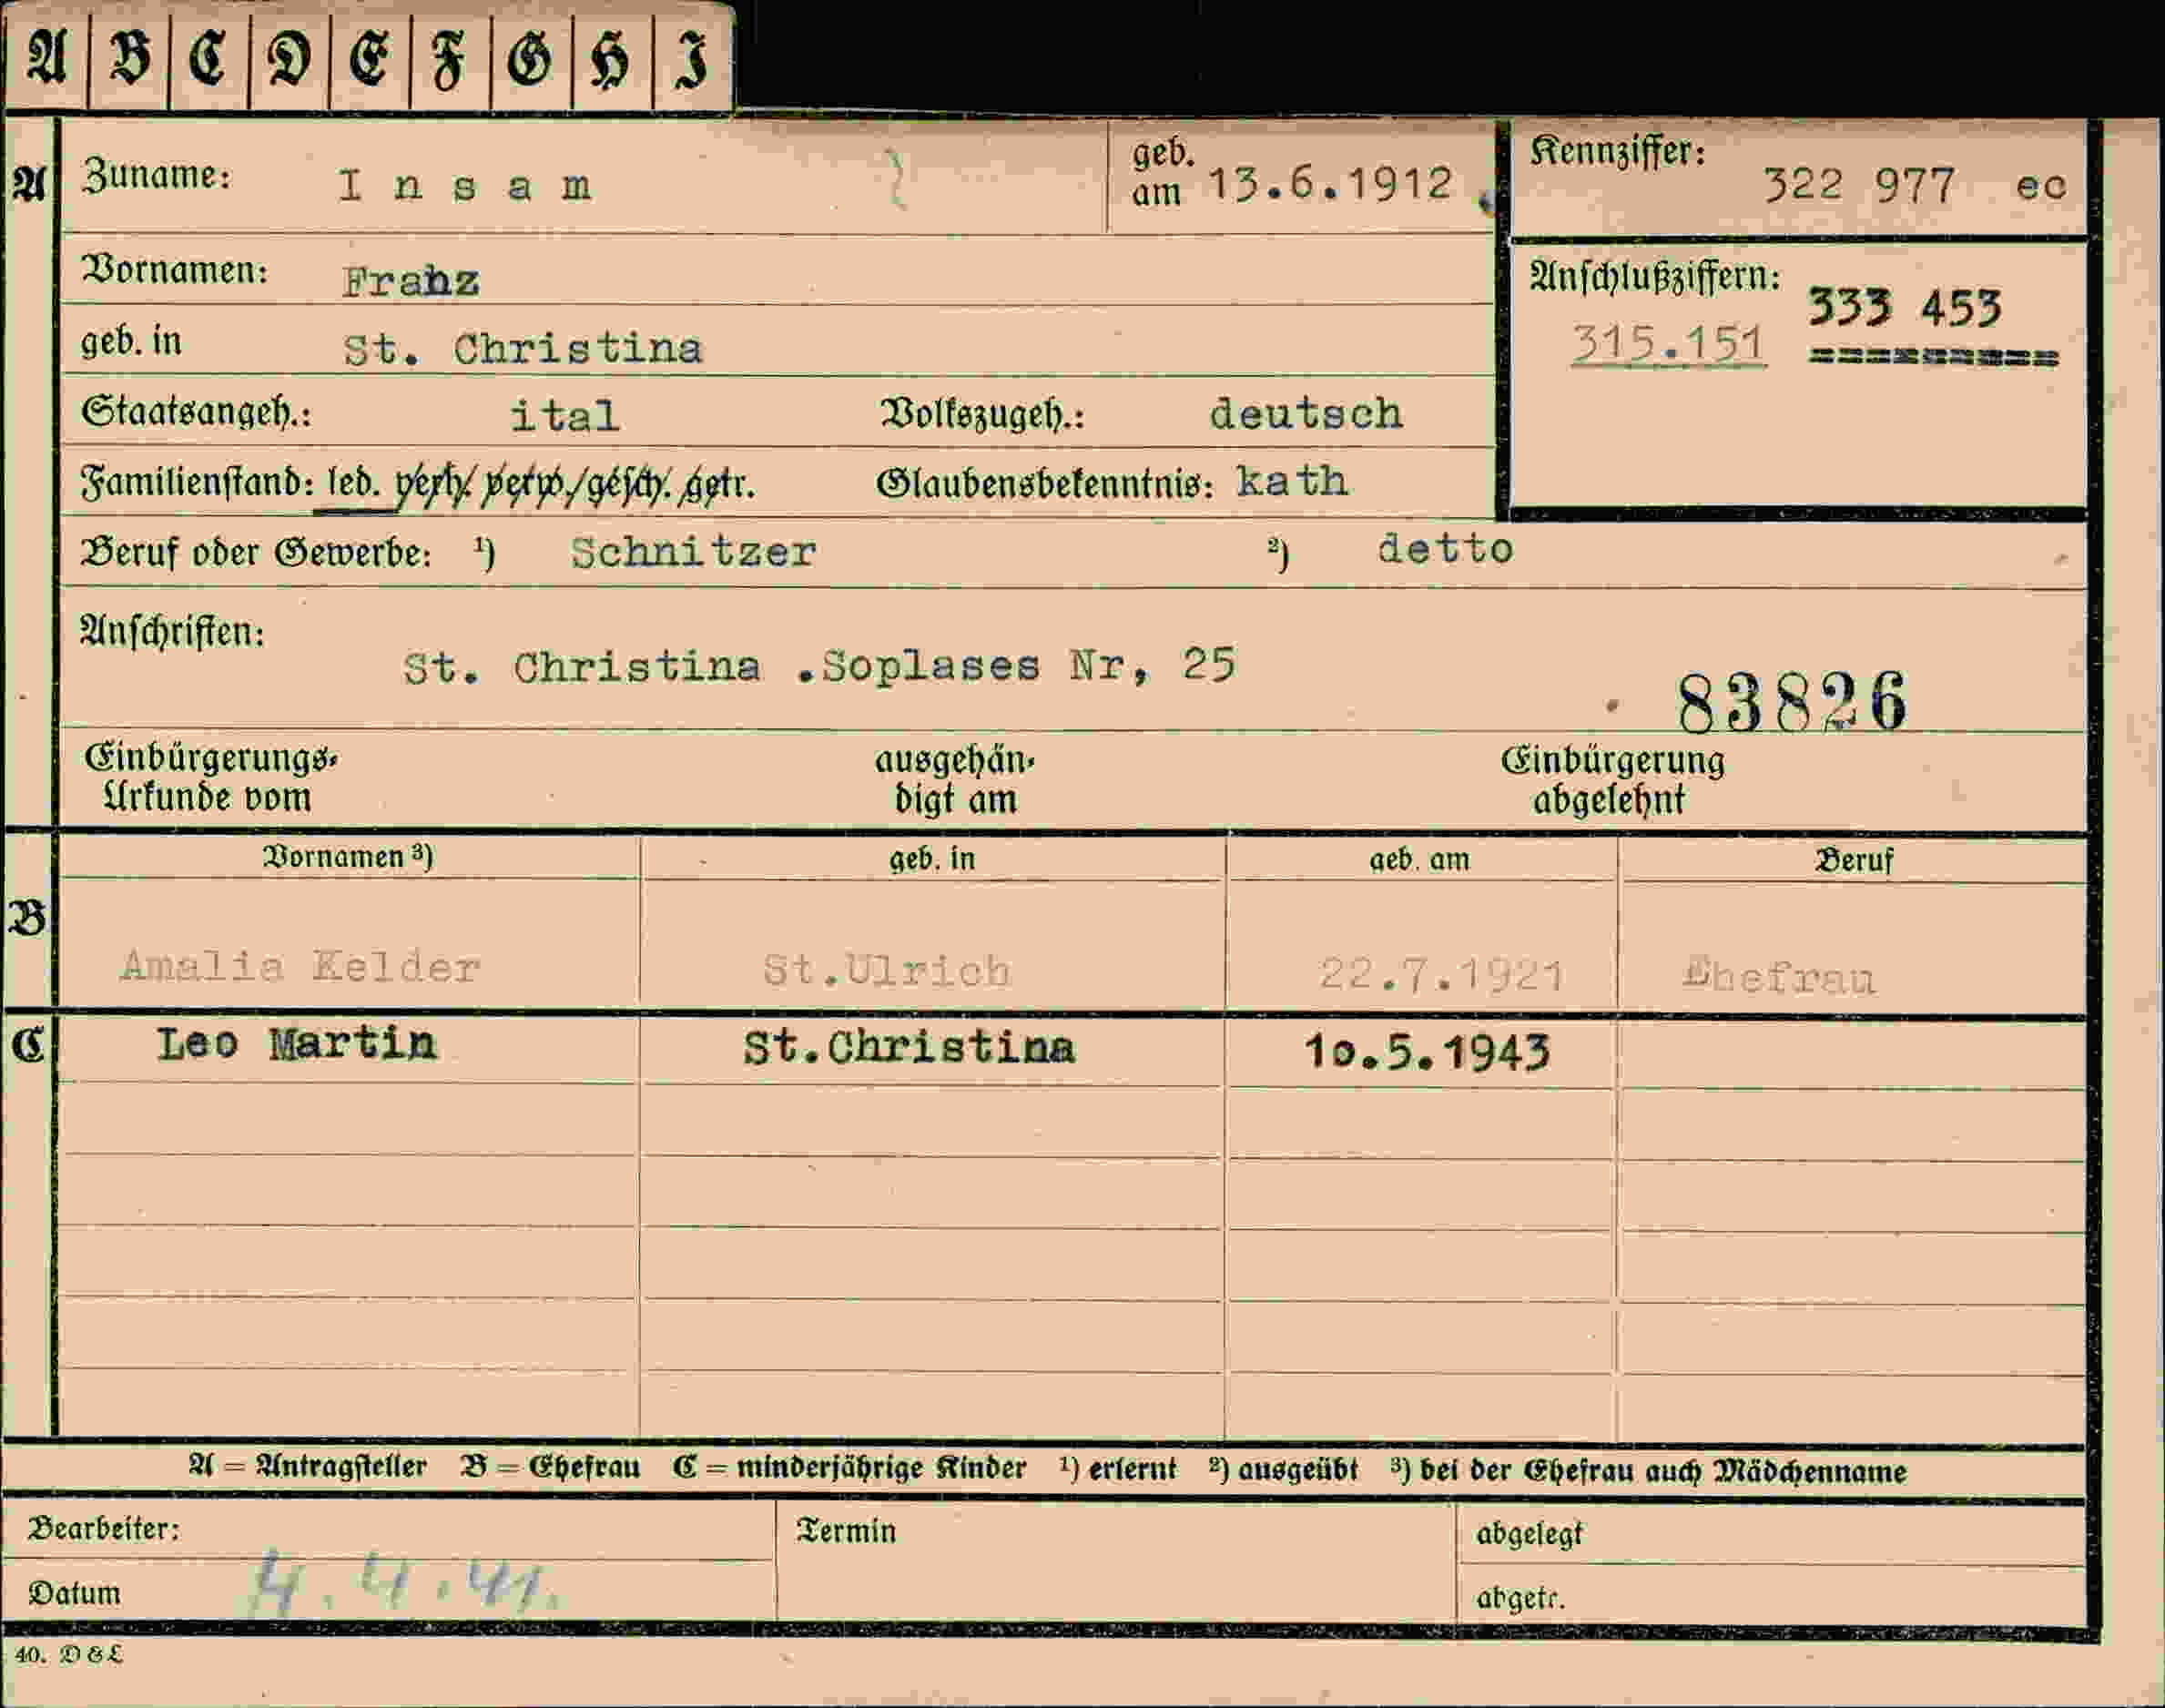 A B C D E F G H I
A Zuname: Insam geb. am 13.6.1912 Kennziffer: 322 977 ec
Vornamen: Franz Anschlußziffern: 333 453
geb. in St. Christina 315.151 =========
Staatsangeh.: ital Volkszugeh.: deutsch
Familienstand: led. verh. verw./gesch. getr. Glaubensbekenntnis: kath
Beruf oder Gewerbe: ¹) Schnitzer ²) detto
Anschriften:
St. Christina .Soplases Nr, 25
83826
Einbürgerungs-Urkunde vom ausgehändigt am Einbürgerung abgelehnt
Vornamen ³) geb. in geb. am Beruf
B Amalia Kelder St.Ulrich 22.7.1921 Ehefrau
C Leo Martin St.Christina 1o.5.1943
A = Antragsteller B = Ehefrau C = minderjährige Kinder ¹) erlernt ²) ausgeübt ³) bei der Ehefrau auch Mädchenname
Bearbeiter: Termin abgelegt
Datum 4.4.41. abgetr.
40. D & L